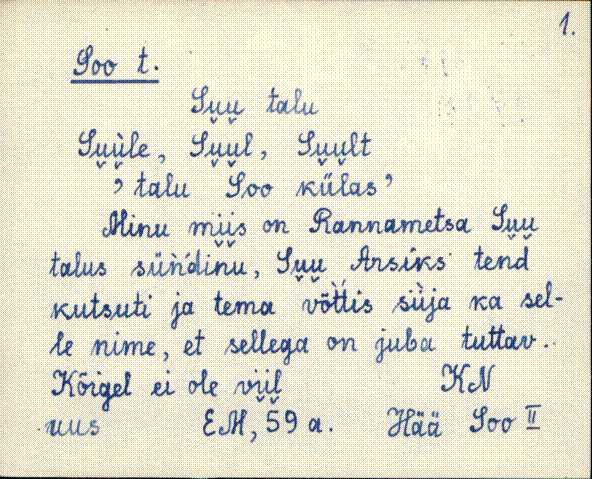 1.
Soo t.
Su̬u̬ talu
Su̬ù̬le, Su̬u̬l, Su̬u̬lt
’talu Soo külas’
Minu mi̬i̬s on Rannametsa Su̬u̬
talus süǹ́dinu, Su̬u̬ Arsiks tend
kutsuti ja tema võt̀t̀is sùja ka sel-
le nime, et sellega on juba tuttav.
Kõigel ei ole vi̬i̬l KN
uus EM, 59 a. Hää Soo II